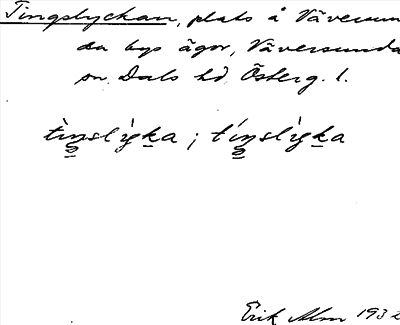 Tingslyckan, plats å Väversun
da bys ägor, Väversunda
sn. Dals hd. Österg. l.
tìnslỳka ; tínslỳka
Erik Alm 1932